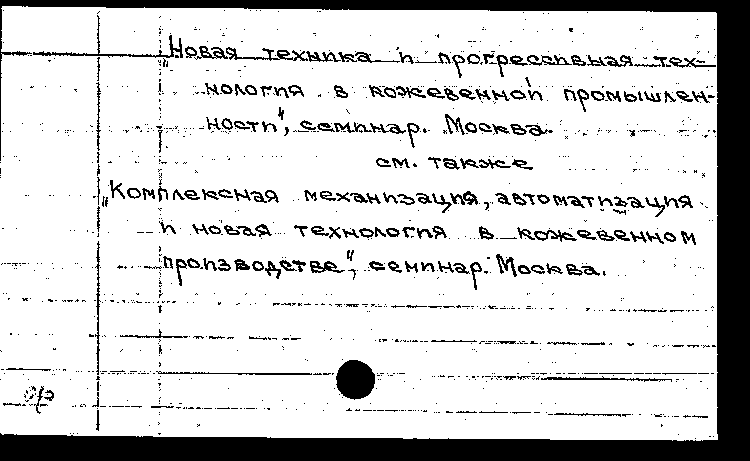 „Новая техника и прогрессивная тех-
нология в кожевенной промышлен-
ности", семинар. Москва.
см. также
„Комплексная механизация, автоматизация
и новая технология в кожевенном
производстве", семинар. Москва.